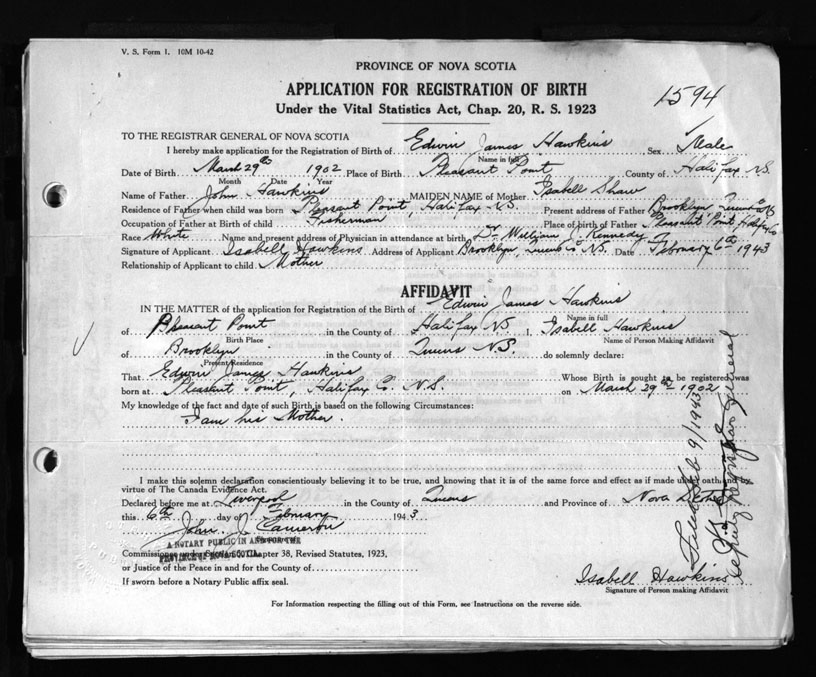 V. S. Form 1. 10M 10-42
PROVINCE OF NOVA SCOTIA
APPLICATION FOR REGISTRATION OF BIRTH
Under the Vital Statistics Act, Chap. 20, R. S. 1923
1594
TO THE REGISTRAR GENERAL OF NOVA SCOTIA
I hereby make application for the Registration of Birth of Edwin James Hawkins Sex Male
Name in full
Date of Birth March 29th 1902 Place of Birth Pleasant Point County of Halifax N.S.
Month Date Year
Name of Father John Hawkins MAIDEN NAME of Mother Isabell Shaw
Residence of Father when child was born Pleasant Point, Halifax N.S. Present address of Father Brooklyn Queens Co NS
Occupation of Father at Birth of child Fisherman Place of birth of Father Pleasant Point Halifax Co
Race White Name and present address of Physician in attendance at birth Dr. William J. Kennedy
Signature of Applicant Isabell Hawkins Address of Applicant Brooklyn, Queens Co N.S. Date February 6th 1943
Relationship of Applicant to child Mother
AFFIDAVIT
IN THE MATTER of the application for Registration of the Birth of Edwin James Hawkins
Name in full
of Pleasant Point in the County of Halifax NS I, Isabell Hawkins
Birth Place Name of Person Making Affidavit
of Brooklyn in the County of Queens N.S. do solemnly declare:
Present Residence
That Edwin James Hawkins Whose Birth is sought to be registered was
born at Pleasant Point, Halifax Co. N.S. on March 29th 1902
My knowledge of the fact and date of such Birth is based on the following Circumstances:
I am his Mother.
I make this solemn declaration conscientiously believing it to be true, and knowing that it is of the same force and effect as if made under oath and by
virtue of The Canada Evidence Act.
Declared before me at Liverpool in the County of Queens and Province of Nova Scotia
this 6th day of February 1943
John J. Cameron
A NOTARY PUBLIC IN AND FOR THE
PROVINCE OF NOVA SCOTIA
Commissioner under Section 60, Chapter 38, Revised Statutes, 1923,
or Justice of the Peace in and for the County of
If sworn before a Notary Public affix seal.
Isabell Hawkins
Signature of Person making Affidavit
For Information respecting the filling out of this Form, see Instructions on the reverse side.
Filed Feb 9/1943
Deputy Registrar General